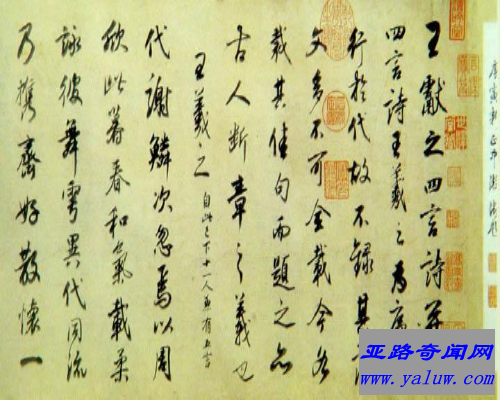 王獻之四言詩并
四言詩王羲之為序
行於代故不錄其
文多不可全載今各
裁其佳句而題之亦
古人斷章之義也
王羲之 自此已下十一人並有五言
代謝鱗次忽焉以周
欣此暮春和氣載柔
詠彼舞雩異代同流
乃攜齊好散懷一
亚路奇闻网
www.yaluw.com